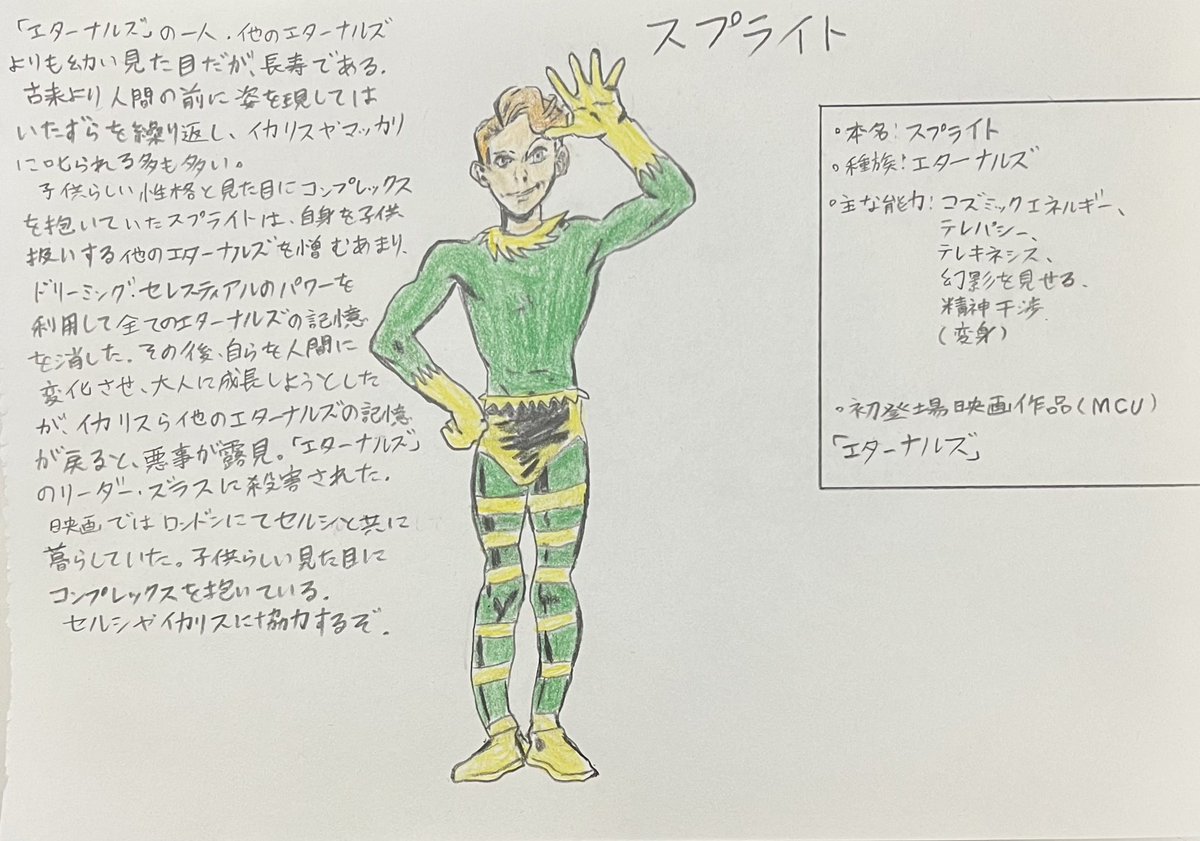 スプライト
「エターナルズ」の一人.他のエターナルズ
よりも幼い見た目だが、長寿である.
古来より人間の前に姿を現しては
いたずらを繰り返し、イカリスやマッカリ
に叱られる多も多い。
子供らしい性格と見た目にコンプレックス
を抱いていたスプライトは、自身を子供
扱いする他のエターナルズを憎むあまり、
ドリーミング・セレスティアルのパワーを
利用して全てのエターナルズの記憶
を消した。その後、自らを人間に
変化させ、大人に成長しようとした
が、イカリスら他のエターナルズの記憶
が戻ると、悪事が露見。「エターナルズ」
のリーダー・ズラスに殺害された.
映画ではロンドンにてセルシと共に
暮らしていた。子供らしい見た目に
コンプレックスを抱いている.
セルシやイカリスに協力するぞ.
・本名:スプライト
・種族:エターナルズ
・主な能力:コズミックエネルギー、
テレパシー、
テレキネシス、
幻影を見せる.
精神干渉.
(変身)
・初登場映画作品(MCU)
「エターナルズ」